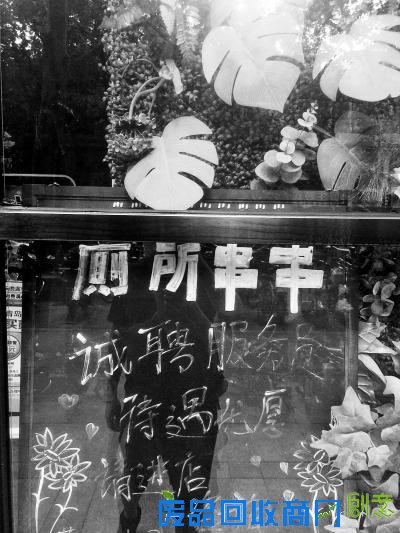 厕所串串
诚聘服务员
待遇优厚
请进店
废品回收商网
创意
青岛